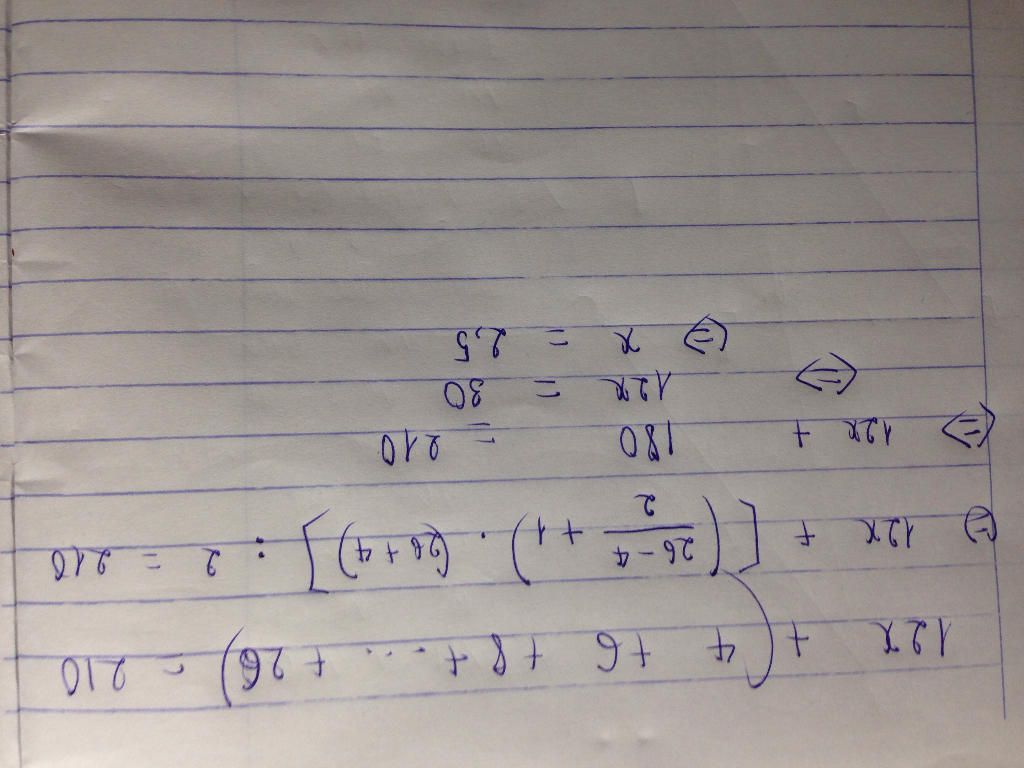 12x + (4 + 6 + 8 + ... + 26) = 210
⇔ 12x + [(\frac{26-4}{2} + 1) . (26+4)] : 2 = 210
⇔ 12x + 180 = 210
⇔ 12x = 30
⇔ x = 2,5